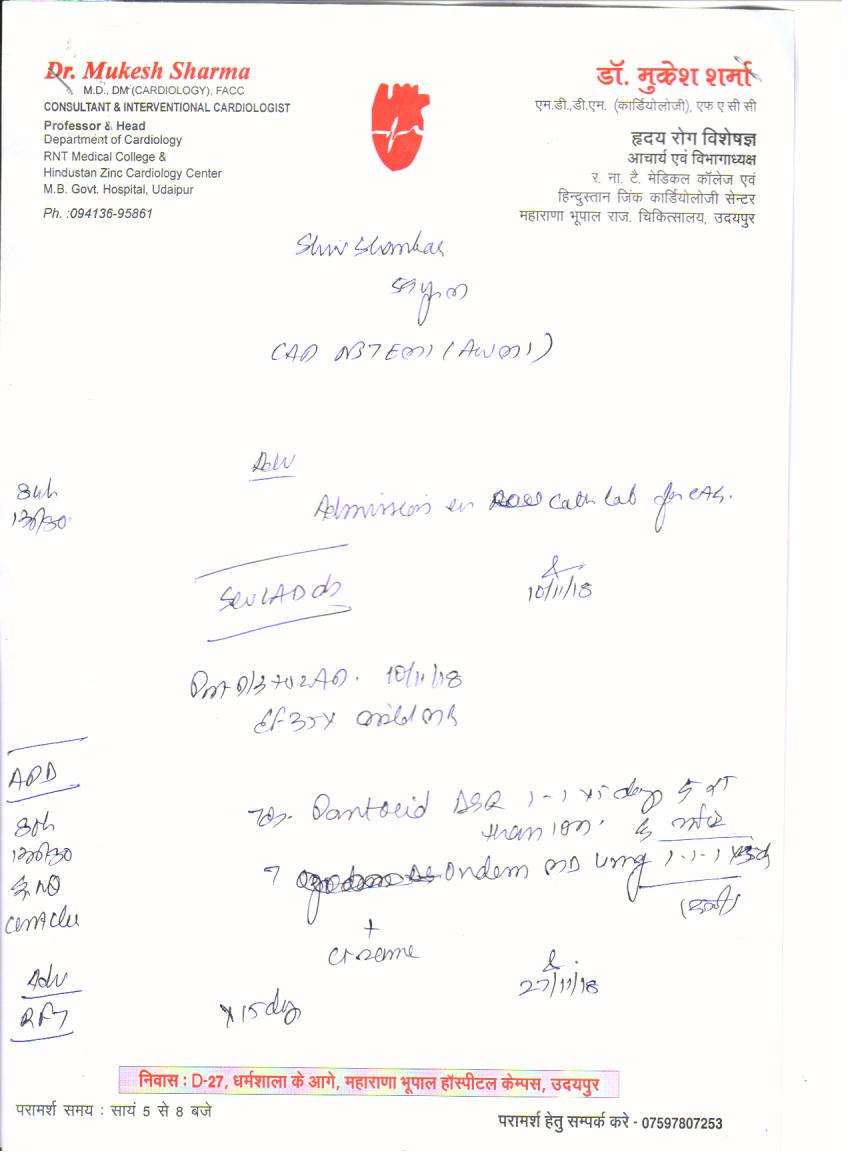 Dr. Mukesh Sharma
M.D., DM (CARDIOLOGY), FACC
CONSULTANT & INTERVENTIONAL CARDIOLOGIST
Professor & Head
Department of Cardiology
RNT Medical College &
Hindustan Zinc Cardiology Center
M.B. Govt. Hospital, Udaipur
Ph. :094136-95861
डॉ. मुकेश शर्मा
एम.डी.,डी.एम. (कार्डियोलोजी), एफ ए सी सी
हृदय रोग विशेषज्ञ
आचार्य एवं विभागाध्यक्ष
र. ना. टै. मेडिकल कॉलेज एवं
हिन्दुस्तान जिंक कार्डियोलोजी सेन्टर
महाराणा भूपाल राज. चिकित्सालय, उदयपुर
Shiv Shankar
CAD NSTEMI (AWMI)
Adv
Admission in Cath Lab for CAG.
10/11/18
10/11/18
EF 35% mild MR
Pantocid DSR 1-1 x 5 day
Ondem MD 4mg 1-1-1
+
Ct same
x 15 day
27/11/18
Adv
RFT
निवास : D-27, धर्मशाला के आगे, महाराणा भूपाल हॉस्पीटल केम्पस, उदयपुर
परामर्श समय : सायं 5 से 8 बजे
परामर्श हेतु सम्पर्क करे - 07597807253